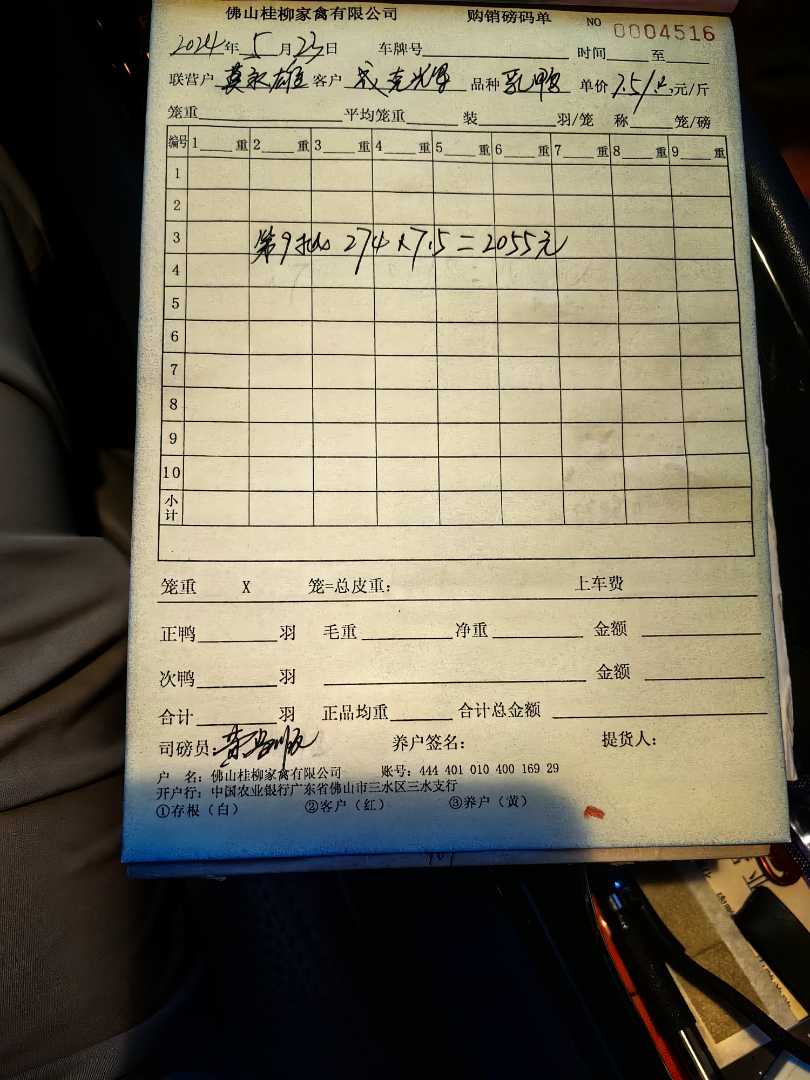 佛山桂柳家禽有限公司 购销磅码单 NO 0004516
2024年5月23日 车牌号 时间 至
联营户 莫永雄 客户 品种 乳鸭 单价 7.5/ 元/斤
笼重 平均笼重 装 羽/笼 称 笼/磅
编号 1 重 2 重 3 重 4 重 5 重 6 重 7 重 8 重 9 重
1
2
3 第9批 274×7.5=2055元
4
5
6
7
8
9
10
小计
笼重 X 笼=总皮重: 上车费
正鸭 羽 毛重 净重 金额
次鸭 羽 金额
合计 羽 正品均重 合计总金额
司磅员: 养户签名: 提货人:
户 名: 佛山桂柳家禽有限公司 账号: 444 401 010 400 169 29
开户行: 中国农业银行广东省佛山市三水区三水支行
①存根(白) ②客户(红) ③养户(黄)